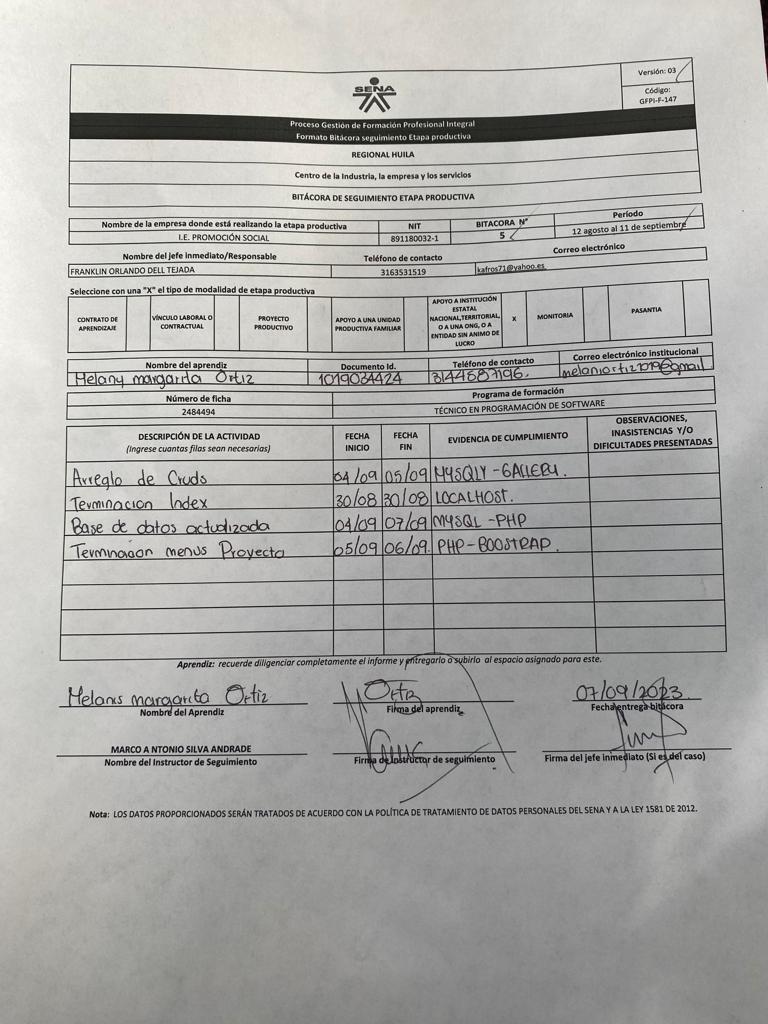 Versión: 03
Código:
GFPI-F-147
SENA
Proceso Gestión de Formación Profesional Integral
Formato Bitácora seguimiento Etapa productiva
REGIONAL HUILA
Centro de la Industria, la empresa y los servicios
BITÁCORA DE SEGUIMIENTO ETAPA PRODUCTIVA
Nombre de la empresa donde está realizando la etapa productiva NIT BITACORA N° Período
I.E. PROMOCIÓN SOCIAL 891180032-1 5 12 agosto al 11 de septiembre
Nombre del jefe inmediato/Responsable Teléfono de contacto Correo electrónico
FRANKLIN ORLANDO DELL TEJADA 3163531519 kafros71@yahoo.es
Seleccione con una "X" el tipo de modalidad de etapa productiva
CONTRATO DE APRENDIZAJE
VÍNCULO LABORAL O CONTRACTUAL
PROYECTO PRODUCTIVO
APOYO A UNA UNIDAD PRODUCTIVA FAMILIAR
APOYO A INSTITUCIÓN ESTATAL NACIONAL,TERRITORIAL, O A UNA ONG, O A ENTIDAD SIN ANIMO DE LUCRO
X
MONITORIA
PASANTIA
Nombre del aprendiz Documento Id. Teléfono de contacto Correo electrónico institucional
Melany margarita Ortiz 1019034424 3144687196. melaniortiz1019@gmail
Número de ficha Programa de formación
2484494 TÉCNICO EN PROGRAMACIÓN DE SOFTWARE
DESCRIPCIÓN DE LA ACTIVIDAD
(Ingrese cuantas filas sean necesarias)
FECHA INICIO
FECHA FIN
EVIDENCIA DE CUMPLIMIENTO
OBSERVACIONES, INASISTENCIAS Y/O DIFICULTADES PRESENTADAS
Arreglo de Cruds 04/09 05/09
Terminacion Index 30/08 30/08 LOCALHOST.
Base de datos actualizada 04/09 07/09 MYSQL -PHP
Terminacion menus Proyecto 05/09 06/09. PHP-BOOSTRAP.
Aprendiz: recuerde diligenciar completamente el informe y entregarlo o subirlo al espacio asignado para este.
margarita Ortiz Ortiz 07/09/2023.
Nombre del Aprendiz Firma del aprendiz Fecha entrega bitácora
MARCO A NTONIO SILVA ANDRADE
Nombre del Instructor de Seguimiento Firma de Instructor de seguimiento Firma del jefe inmediato (Si es del caso)
Nota: LOS DATOS PROPORCIONADOS SERÁN TRATADOS DE ACUERDO CON LA POLÍTICA DE TRATAMIENTO DE DATOS PERSONALES DEL SENA Y A LA LEY 1581 DE 2012.